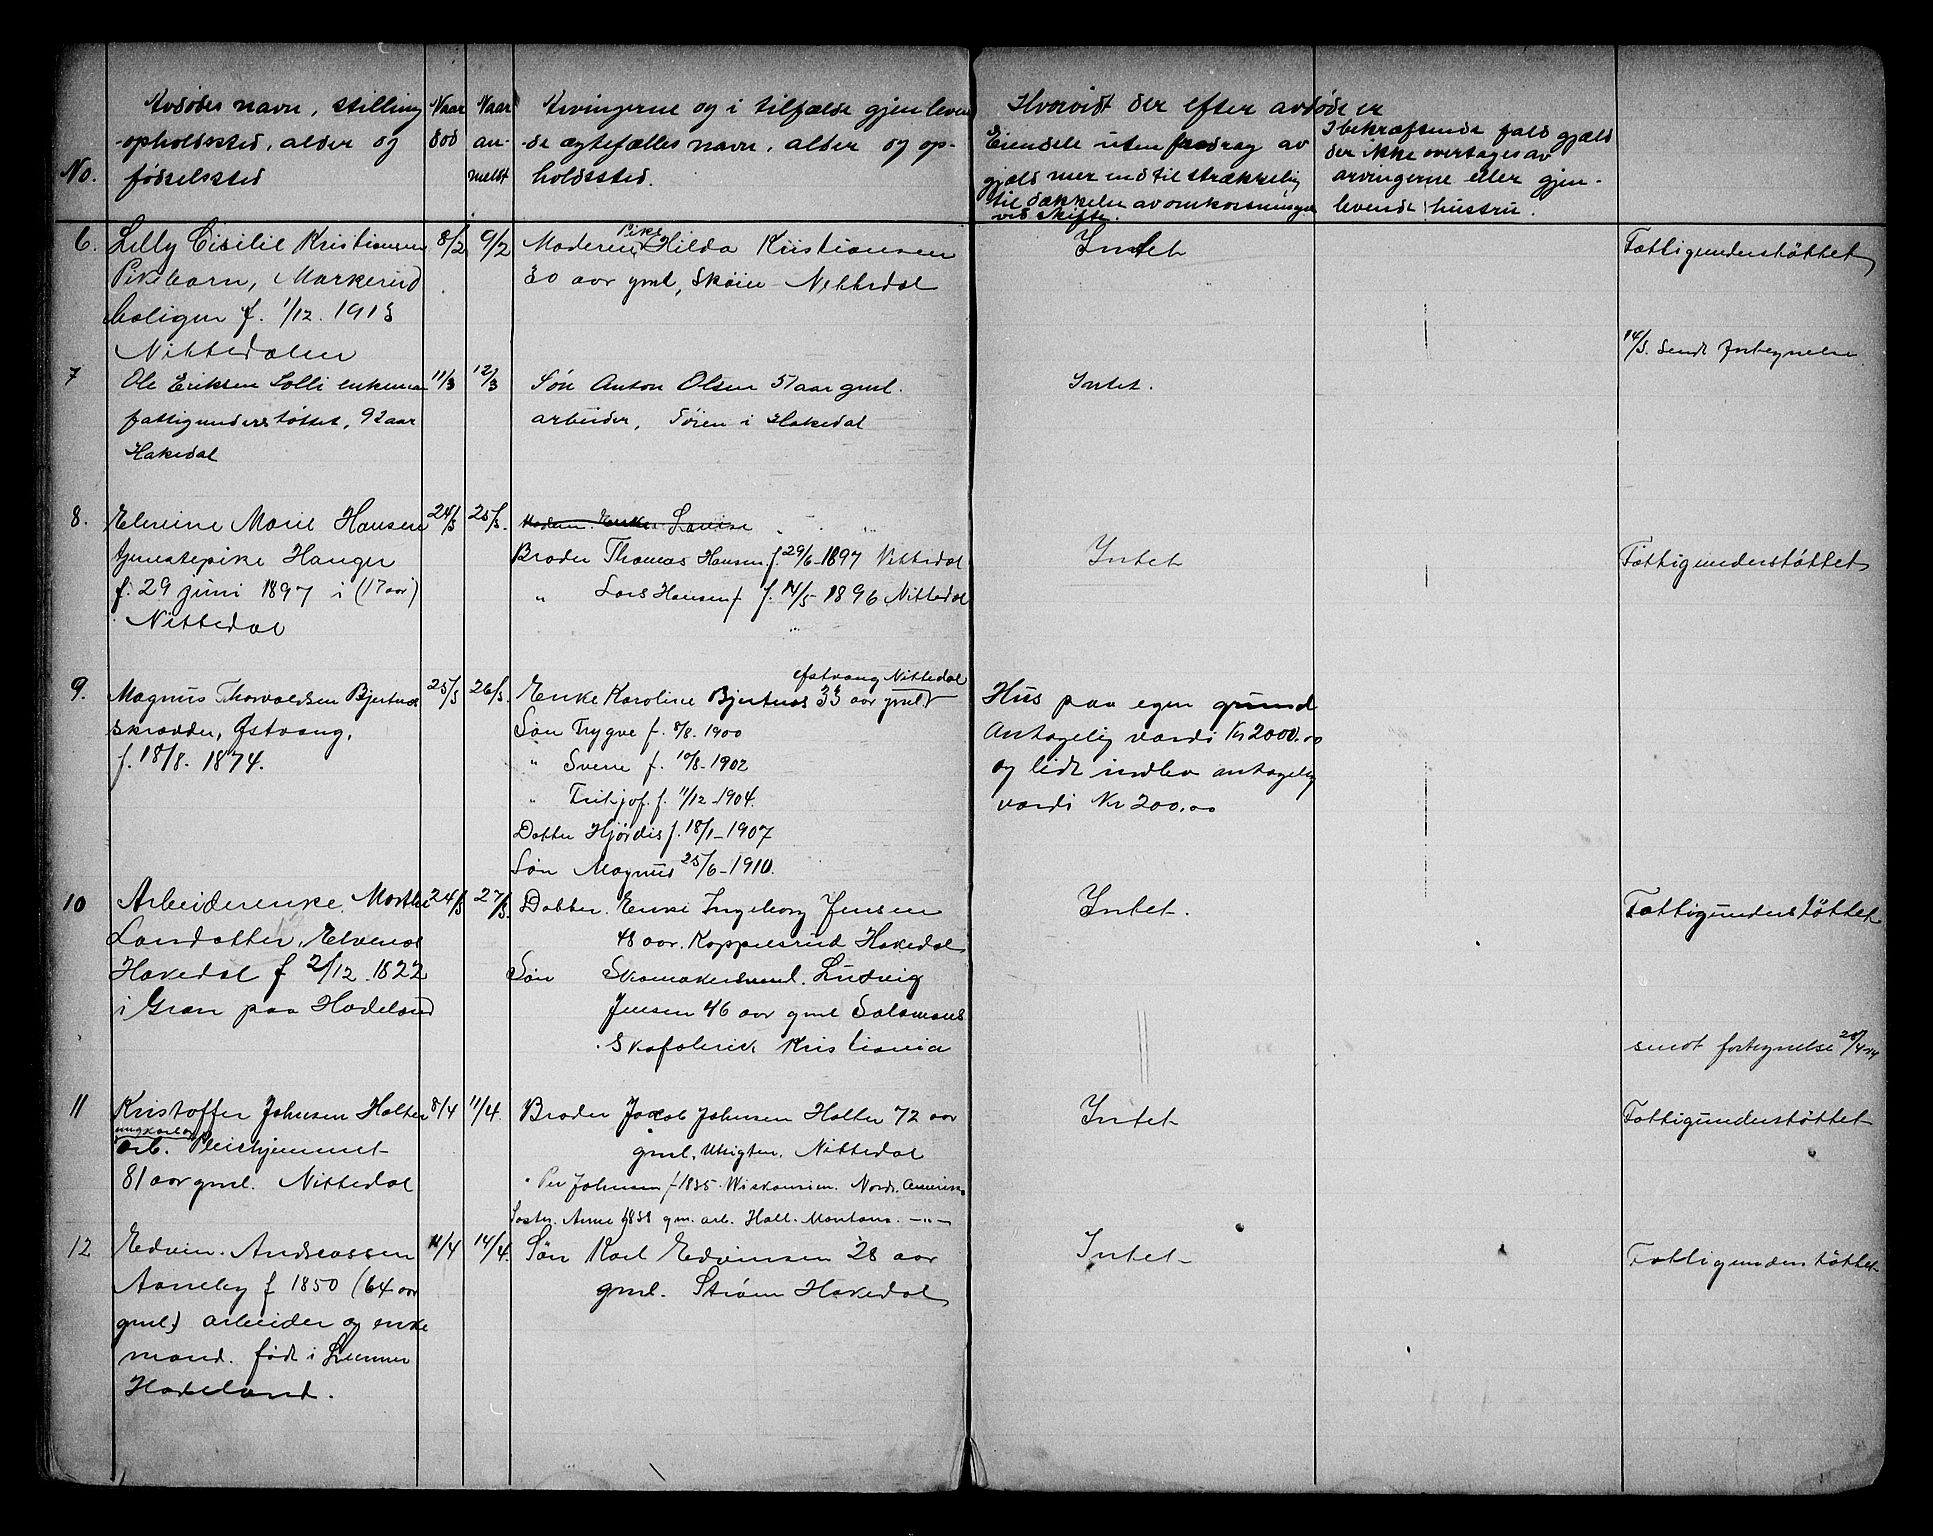 No.
Avdødes navn, stilling
opholdssted, alder og
fødselssted
Naar
død
Naar
an-
meldt
Arvingerne og i tilfælde gjenleven
de egtefælles navn, alder og op-
holdssted.
Hvorvidt der efter avdøde er
Eiendele uten fradrag av
gjæld mer end til strækkelig
til dækkelse av omkostningene
ved skifte.
I bekræftende fald gjæld
der ikke overtages av
arvingerne eller gjen-
levende hustru.
6. Lilly Cisilie Kristiansen 8/2 9/2 Moderen Pike Hilda Kristiansen Intet Fattigunderstøttet
Pikebarn, Markerud 30 aar gml, Skøien Nittedal
boligen f. 1/12 1913
Nittedalen 14/3. Sendt fortegnelse
7 Ole Eriksen Solli enkeman 11/3 12/3 Søn Anton Olsen 51 aar gml. Intet.
fattigunderstøttet, 92 aar arbeider, Søren i Hakedal
Hakedal
8. Marie Hansen 24/3 25/3. Modern Enke Lovise
tjenestepike Hauger Broder Thomas Hansen f. 29/6-1897 Nittedal Intet Fattigunderstøttet
f. 29 juni 1897 i (17 aar) " Lars Hansen f. 14/5 1896 Nittedal
Nittedal
9. Magnus Thorvaldsen Bjertnæs 25/3 26/3. Enke Karoline Bjertnæs 33 aar gml Østvang Nittedal Hus paa egen grund
skrædder, Østvang, Søn Trygve f. 8/8. 1900 Antagelig værdi Kr 2000.00
f. 18/8. 1874. " Sverre f. 10/8-1902 og lidt indbo antagelig
" Fritjof. f. 11/12-1904. værdi Kr 200.00
Datter Hjørdis f. 18/1-1907
Søn Magnus 25/6-1910.
10 Arbeiderenke, Marthe 24/3 27/3. Datter. Enke Ingeborg Jensen Intet. Fattigunderstøttet
Larsdatter, Elvenæs 48 aar. Hakedal
Hakedal f 2/12. 1822 Søn Skomakersvend. Ludvig
i Gran paa Hadeland Jensen 46 aar gml Salomons
Skofabrik Kristiania sendt fortegnelse 20/4-14
11 Kristoffer Johnsen Holter 8/4 11/4. Broder Jacob Johnsen Holter 72 aar Intet Fattigunderstøttet
ungkarl og
arb. Pleiehjemmet gml. Nittedal
81 aar gml. Nittedal " Per Johnsen f 1835. Wiskonsien. Nord. Amerika
Søster. Anne 1838 gm. arb. Hall. Montana. -"-
12 Edvin. Andreassen 11/4 14/4. Søn Karl Edvinsen 28 aar Intet Fattigunderstøttet
Aaneby f 1850 (64 aar gml. Strøm Hakedal
gml.) arbeider og enke
mand. født i Lunner
Hadeland.